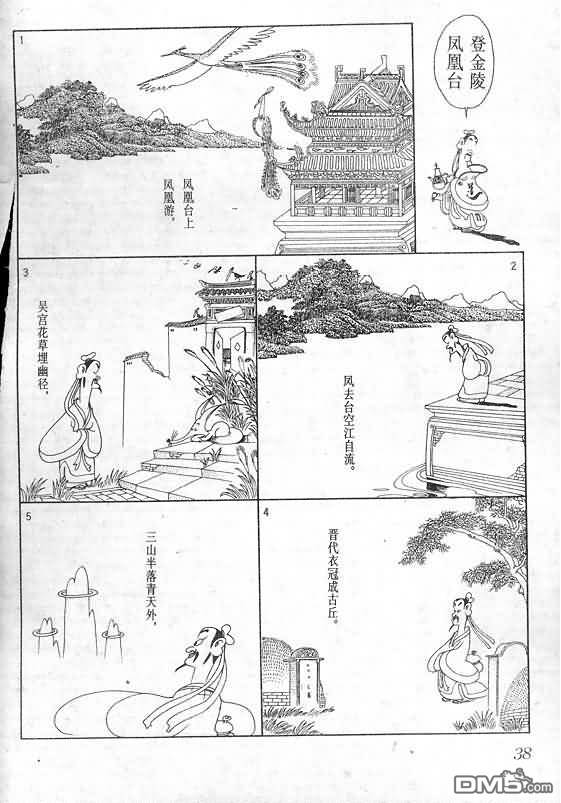 登金陵
凤凰台
1
凤凰台上
凤凰游。
2
凤去台空江自流。
3
吴宫花草埋幽径，
4
晋代衣冠成古丘。
5
三山半落青天外，
38
DM5.com